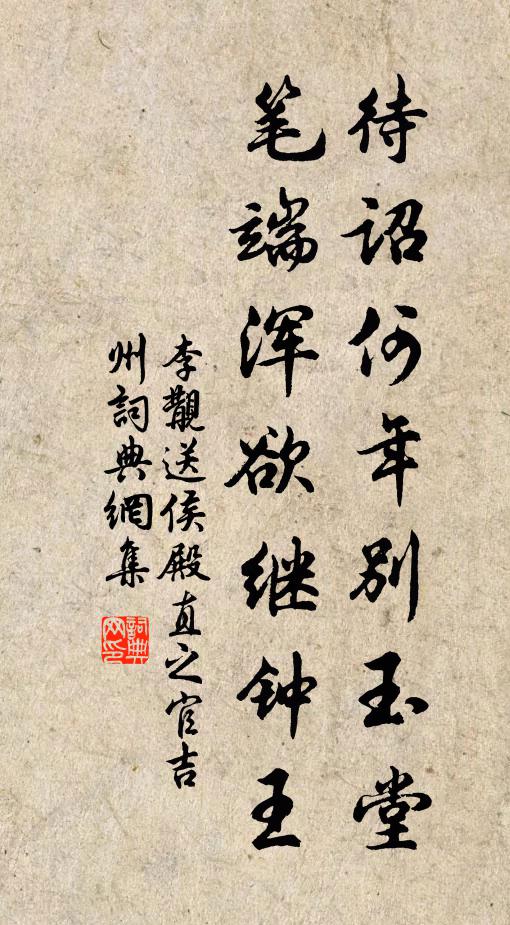 待诏何年别玉堂
笔端浑欲继钟王
李觏送侯殿直之官吉
州詞典網集
詞典
网印